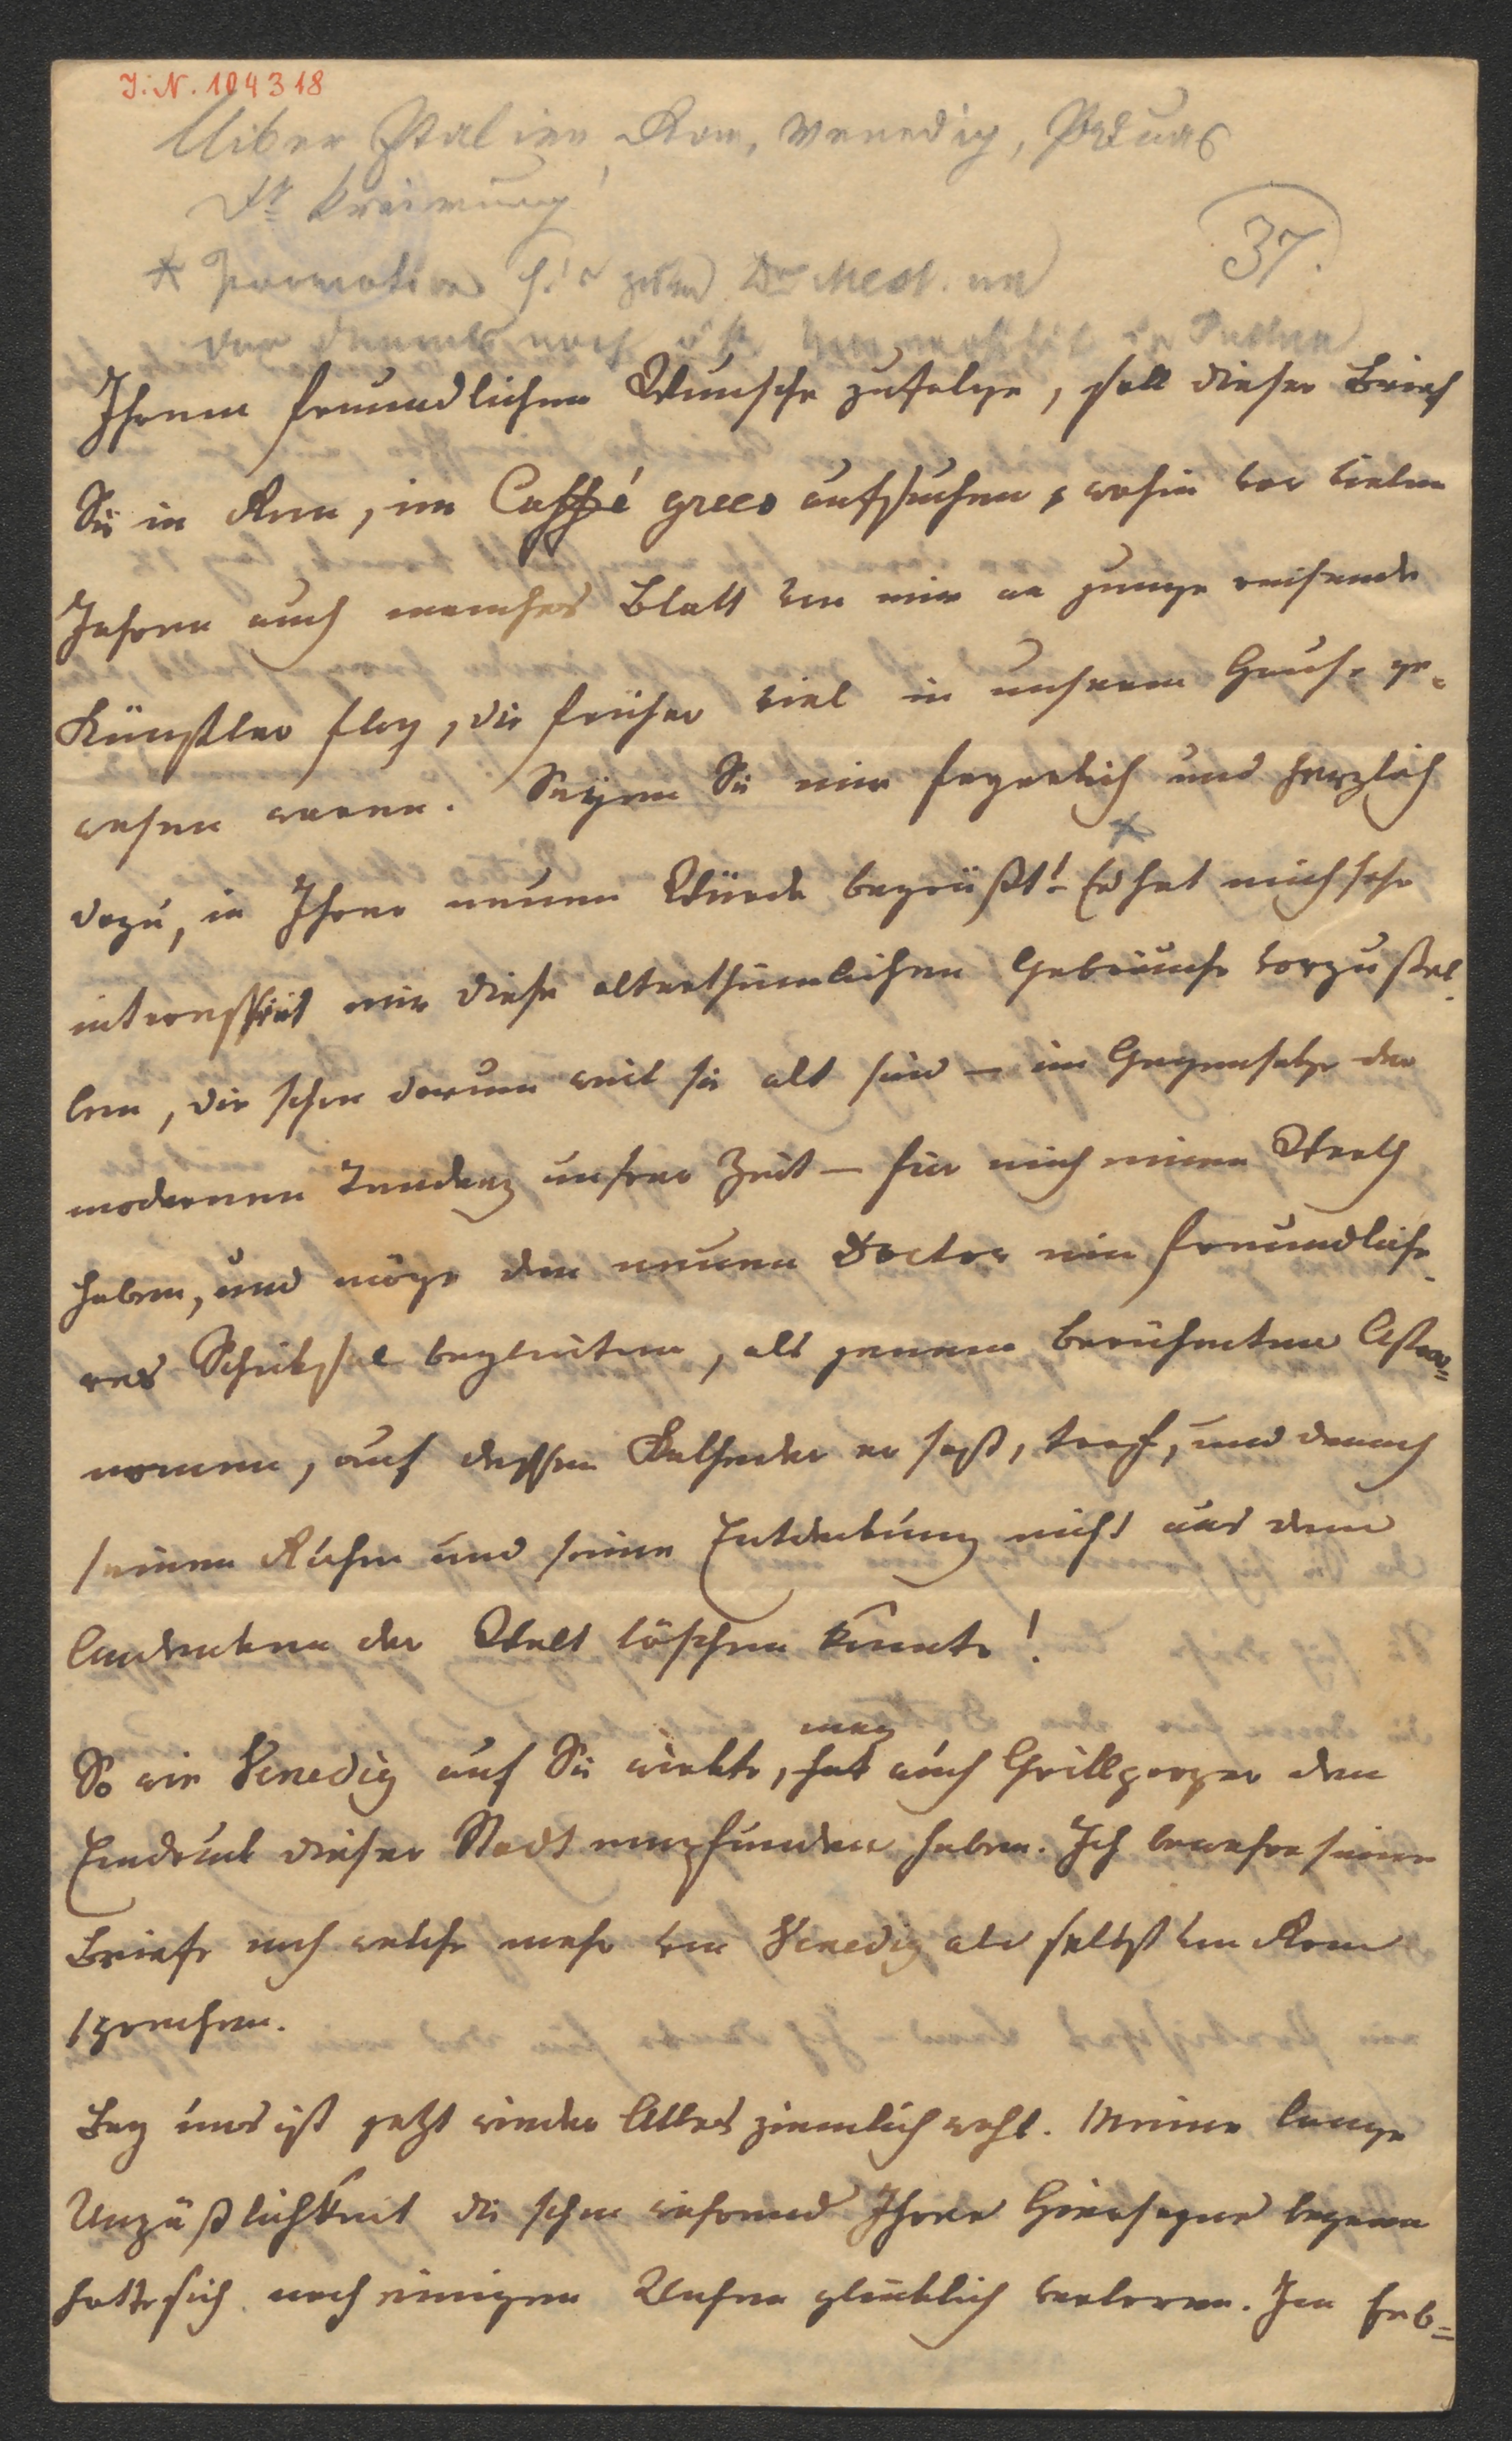 I. N. 104318
Über Italien, Rom, Venedig, Padua
Dr
37.
* Promotion zum Dr Med. an
der damals noch öst. Universität in Padua
Ihrem freundlichen Wunsche zufolge, soll dieser Brief
Sie in Rom, im Caffé greco aufsuchen, wohin vor vielen
Jahren auch manches Blatt von mir an junge reisende
Künstler flog, die früher viel in unserem Hause ge-
wesen waren. Seyen Sie mir feyerlich und herzlich
dazu, in Ihrer neuen Würde begrüßt! – Es hat mich sehr
interessirt mir diese alterthümlichen Gebräuche vorzustel-
len, die schon darum weil sie alt sind – im Gegensatze der
modernen Tendenz unsrer Zeit – für mich einen Werth
haben, und möge den neuen Doctor ein freundliche-
res Schicksal begleiten, als jenem berühmten Astro=
nomen, auf dessen Katheder er saß, traf, und dennoch
seinen Ruhm und seine Entdeckung nicht aus dem
Andenken der Welt löschen konnte!
So wie Venedig auf Sie wirkte, hat mag auch Grillparzer den
Eindruck dieser Stadt empfunden haben. Ich bewahre seine
Briefe noch welche mehr von Venedig als selbst von Rom
sprechen.
Bey uns ist jetzt wieder Alles ziemlich wohl. Meine lange
Unpäßlichkeit die schon während Ihres Hierseyns begann
hatte sich nach einigen Wochen glücklich verloren. Im Feb=